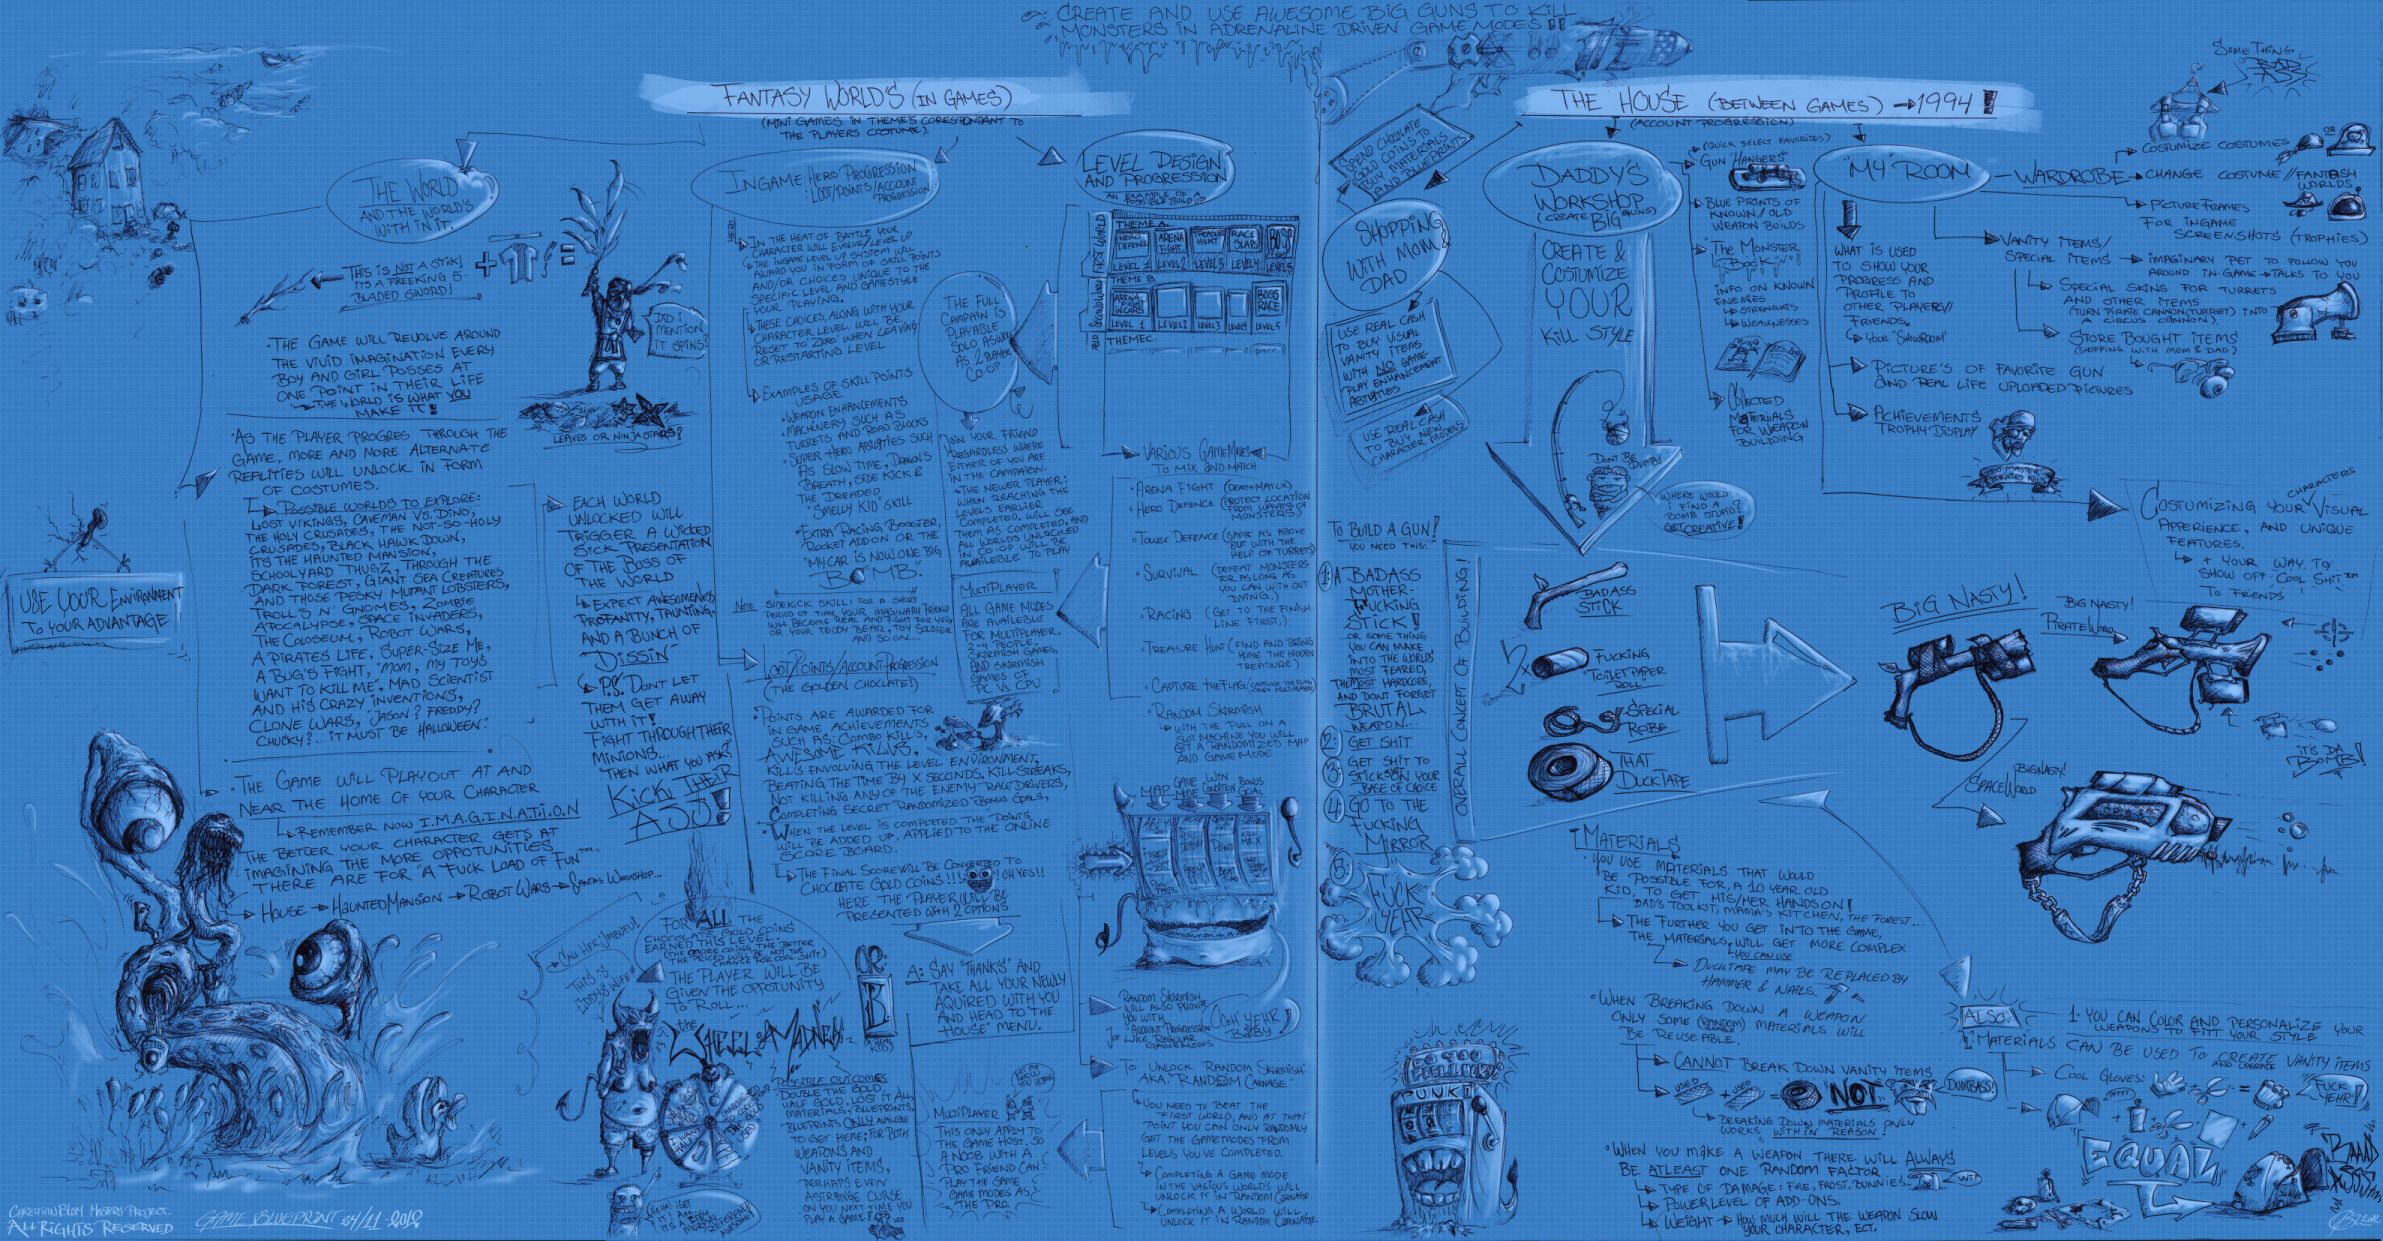 CREATE AND USE AWESOME BIG GUNS TO KILL
MONSTERS IN ADRENALINE DRIVEN GAME MODES!!
FANTASY WORLD'S (IN GAMES)
(MINI GAMES IN THEME'S CORESPONDANT TO
THE PLAYERS COSTUME).
THE WORLD
AND THE WORLD'S
WITH IN IT.
THIS IS NOT A STICK!
ITS A FREEKING 5-
BLADED SWORD!
DID I
MENTION
IT SPINS?
LEAVES OR NINJASTARS?
• THE GAME WILL REVOLVE AROUND
THE VIVID IMAGINATION EVERY
BOY AND GIRL POSSES AT
ONE POINT IN THEIR LIFE
THE WORLD IS WHAT YOU
MAKE IT!
• AS THE PLAYER PROGRES THROUGH THE
GAME, MORE AND MORE ALTERNATE
REALITIES WILL UNLOCK IN FORM
OF COSTUMES.
POSSIBLE WORLDS TO EXPLORE:
LOST VIKINGS, CAVEMAN VS. DINO,
THE HOLY CRUSADES, THE NOT-SO-HOLY
CRUSADES, BLACK HAWK DOWN,
ITS THE HAUNTED MANSION,
SCHOOLYARD THUGZ, THROUGH THE
DARK FOREST, GIANT SEA CREATURES
AND THOSE PESKY MUTANT LOBSTERS,
TROLL'S N' GNOMES, ZOMBIE
APOCALYPSE, SPACE INVADERS,
THE COLOSEUM, ROBOT WARS,
A PIRATES LIFE, SUPER-SIZE ME,
A BUG'S FIGHT, "MOM, MY TOYS
WANT TO KILL ME", MAD SCIENTIST
AND HIS CRAZY INVENTIONS,
CLONE WARS, "JASON? FREDDY?
CHUCKY?... IT MUST BE HALLOWEEN".
USE YOUR ENVIRONMENT
TO YOUR ADVANTAGE
• THE GAME WILL PLAYOUT AT AND
NEAR THE HOME OF YOUR CHARACTER
REMEMBER NOW I.M.A.G.I.N.A.T.I.O.N
THE BETTER YOUR CHARACTER GETS AT
IMAGINING THE MORE OPPOTUNITIES
THERE ARE FOR "A FUCK LOAD OF FUN"™
HOUSE → HAUNTED MANSION → ROBOT WARS → SANTAS WORKSHOP...
EACH WORLD
UNLOCKED WILL
TRIGGER A WICKED
SICK PRESENTATION
OF THE BOSS OF
THE WORLD
EXPECT AWESOMENESS,
PROFANITY, TAUNTING,
AND A BUNCH OF
"DISSIN"
P.S. DONT LET
THEM GET AWAY
WITH IT!
FIGHT THROUGH THEIR
MINIONS...
THEN WHAT YOU ASK?
KICK THEIR
ASS!
CHRISTIAN BLOM MASTERS PROJECT.
ALL RIGHTS RESERVED
GAME BLUEPRINT 24/11-2012
INGAME: HERO PROGRESSION
: LOOT/POINTS/ACCOUNT
PROGRESSION
HERO
IN THE HEAT OF BATTLE YOUR
CHARACTER WILL EVOLVE/LEVEL UP
THE INGAME LEVEL UP SYSTEM WILL
AWARD YOU IN FORM OF SKILL POINTS
AND/OR CHOICES UNIQUE TO THE
SPECIFIC LEVEL AND GAMESTYLE
YOUR PLAYING.
THESE CHOICES, ALONG WITH YOUR
CHARACTER LEVEL, WILL BE
RESET TO "ZERO" WHEN LEAVING
OR RESTARTING LEVEL
EXAMPLES OF SKILL POINTS
USAGE
• WEAPON ENHANCEMENTS
• MACHINERY SUCH AS
TURRETS AND ROAD BLOCKS
• SUPER HERO ABILITIES SUCH
AS SLOW TIME, DRAGON'S
BREATH, SIDE KICK &
THE DREADED
"SMELLY KID" SKILL
• EXTRA RACING BOOSTER,
ROCKET ADD-ON OR THE
"MY CAR IS NOW ONE BIG
BOMB."
NOTE SIDEKICK SKILL: FOR A SHORT
PERIOD OF TIME YOUR IMAGINARY FRIEND
WILL BECOME REAL AND FIGHT FOR YOU,
OR YOUR TEDDY BEAR, TOY SOLDIER
AND SO ON...
LOOT/POINTS/ACCOUNT PROGRESSION
(THE GOLDEN CHOCLATE!)
• POINTS ARE AWARDED FOR
IN GAME ACHIEVEMENTS
SUCH AS: COMBO KILLS,
AWESOME KILLS,
KILLS ENVOLVING THE LEVEL ENVIRONMENT,
BEATING THE TIME BY X SECONDS, KILLSTREAKS,
NOT KILLING ANY OF THE ENEMY RACE DRIVERS,
COMPLETING SECRET RANDOMIZED BONUS GOALS,
• WHEN THE LEVEL IS COMPLETED THE POINTS
WILL BE ADDED UP, APPLIED TO THE ONLINE
SCORE BOARD.
THE FINAL SCORE WILL BE CONVERTED TO
CHOCLATE GOLD COINS!!! OH YES!!
HERE THE PLAYER WILL BE
PRESENTED WITH 2 OPTIONS
A: SAY "THANKS" AND
TAKE ALL YOUR NEWLY
AQUIRED WITH YOU
AND HEAD TO THE
"HOUSE" MENU.
OR
B.
FOR ALL THE
CHOCLATE GOLD COINS
EARNED THIS LEVEL.
THE PLAYER WILL BE
GIVEN THE OPPOTUNITY
TO ROLL...
THIS IS
EDDY'S WIFE
the WHEEL of MADNESS!
POSSIBLE OUTCOMES
DOUBLE THE GOLD,
HALF GOLD, LOST IT ALL,
MATERIALS, BLUEPRINTS,
BLUEPRINTS ONLY AVAILABLE
TO GET HERE; FOR BOTH
WEAPONS AND
VANITY ITEMS,
PERHAPS EVEN
A STRANGE CURSE
ON YOU NEXT TIME YOU
PLAY A GAME!
MULTIPLAYER
THIS ONLY APPLY TO
THE GAME HOST. SO
A NOOB WITH A
PRO FRIEND CAN
PLAY THE SAME
GAME MODES AS
THE PRO.
THE FULL
CAMPAIN IS
PLAYABLE
SOLO ASWELL
AS 2 PLAYER
CO-OP
JOIN YOUR FRIEND
REGARDLESS WHERE
EITHER OF YOU ARE
IN THE CAMPAIGN.
• THE NEWER PLAYER;
WHEN REACHING THE
LEVELS EARLIER
COMPLETED, WILL SEE
THEM AS COMPLETED, AND
ALL WORLDS UNLOCKED
IN CO-OP WILL BE
AVAILEBLE TO PLAY
MULTIPLAYER
ALL GAME MODES
ARE AVAILABLE
FOR MULTIPLAYER,
2-4 PEOPLE,
SKIRMISH GAMES,
AND SKIRMISH
GAMES OF
PC VS CPU
LEVEL DESIGN
AND PROGRESSION
AN EXAMPLE OF A
POSSIBLE BUILD UP
FIRST WORLD
THEME A.
HERO DEFENCE
ARENA FIGHT
TREASURE HUNT
RACE 3 LAPS
BOSS FIGHT
LEVEL 1 LEVEL 2 LEVEL 3 LEVEL 4 LEVEL 5
SECOND WORLD
THEME B
ARENA FIGHT IN CARS
BOSS RACE
LEVEL 1 LEVEL 2 LEVEL 3 LEVEL 4 LEVEL 5
THEME C.
VARIOUS GAMEMODES
TO MIX AND MATCH
• ARENA FIGHT (DEATHMATCH)
• HERO DEFENCE (PROTECT LOCATION
FROM WAVES OF
MONSTERS)
• TOWER DEFENCE (SAME AS ABOVE
BUT WITH THE
HELP OF TURRETS)
• SURVIVAL (DEFEAT MONSTERS
FOR AS LONG AS
YOU CAN WITH OUT
DYING.)
• RACING (GET TO THE FINISH-
LINE FIRST.)
• TREASURE HUNT (FIND AND BRING
HOME THE HIDDEN
TREASURE)
• CAPTURE THE FLAG
• RANDOM SKIRMISH
WITH THE PULL ON A
SLOT MACHINE YOU WILL
GET A RANDOMIZED MAP
AND GAMEMODE
MAP GAME MODE WIN CONDITION BONUS GOAL
RANDOM SKIRMISH
WILL ALSO PROVIDE
YOU WITH
"ACCOUNT PROGRESSION"
OOOH YEHR
BABY
TO UNLOCK "RANDOM SKIRMISH"
AKA: "RANDOM CARNAGE"
YOU NEED TO BEAT THE
"FIRST WORLD", AND AT THAT
POINT YOU CAN ONLY RANDOMLY
GET THE GAMEMODES FROM
LEVELS YOU'VE COMPLETED.
COMPLETING A GAME MODE
IN THE VARIOUS WORLDS WILL
UNLOCK IT IN RANDOM CARNAGE.
COMPLETING A WORLD WILL
UNLOCK IT IN RANDOM CARNAGE.
THE HOUSE (BETWEEN GAMES) → 1994!
(ACCOUNT PROGRESSION)
SPEND CHOCLATE
GOLD COINS TO
BUY MATERIALS
AND BLUEPRINTS
SHOPPING
WITH MOM &
DAD
USE REAL CASH
TO BUY VISUAL
VANITY ITEMS
WITH NO GAME
PLAY ENHANCEMENT
ABILITIES
USE REAL CASH
TO BUY NEW
CHARACTER MODELS
DADDY'S
WORKSHOP
(CREATE BIG GUNS)
CREATE &
COSTUMIZE
YOUR
KILL STYLE
DONT BE
DUMB!
WHERE WOULD
I FIND A
BOMB STUPID?
GET CREATIVE!
(QUICK SELECT FAVORITES)
GUN "HANGERS"
BLUE PRINTS OF
KNOWN/OLD
WEAPON BUILDS
THE MONSTER
"BOOK"
INFO ON KNOWN
ENEMIES
STRENGHTS
WEAKNESSES
COLLECTED
MATERIALS
FOR WEAPON
BUILDING
"MY" ROOM
WHAT IS USED
TO SHOW YOUR
PROGRESS AND
PROFILE TO
OTHER PLAYERS//
FRIENDS.
YOUR "SHOWROOM"
WARDROBE → CHANGE COSTUME//FANTASY
WORLDS
COSTUMIZE COSTUMES
OR
SOMETHING
BAD
ASS
PICTURE FRAMES
FOR INGAME
SCREENSHOTS (TROPHIES)
VANITY ITEMS/
SPECIAL ITEMS → IMAGINARY PET TO FOLLOW YOU
AROUND IN-GAME → TALKS TO YOU
SPECIAL SKINS FOR TURRETS
AND OTHER ITEMS
(TURN PIRATE CANNON(TURRET) INTO
A CIRCUS CANNON).
STORE BOUGHT ITEMS
(SHOPPING WITH MOM & DAD)
PICTURE'S OF FAVORITE GUN
AND REAL LIFE UPLOADED PICTURES
ACHIEVEMENTS
TROPHY DISPLAY
COSTUMIZING YOUR CHARACTERS VISUAL
APPERIENCE, AND UNIQUE
FEATURES.
+ YOUR WAY TO
SHOW OFF "COOL SHIT"™
TO FRIENDS!
TO BUILD A GUN!
YOU NEED THIS:
1: A BADASS
MOTHER-
FUCKING
STICK!
...OR SOME THING
YOU CAN MAKE
INTO THE WORLDS
MOST FEARED,
THE MOST HARDCORE,
AND DONT FORGET
BRUTAL
WEAPON...
2: GET SHIT
3: GET SHIT TO
STICK ON YOUR
BASE OF CHOICE
4: GO TO THE
FUCKING
MIRROR
5:
FUCK
YEHR
OVERALL CONCEPT OF BUILDING!
BADASS
STICK
2x
FUCKING
"TOILETPAPER
ROLL"
SPECIAL
ROBE
THAT
DUCKTAPE
BIG NASTY!
BIG NASTY!
PIRATEWORLD
BIG NASTY!
SPACEWORLD
IT'S DA
BOMB!
MATERIALS
• YOU USE MATERIALS THAT WOULD
BE POSSIBLE FOR A 10 YEAR OLD
KID, TO GET HIS/HER HANDS ON!
DAD'S TOOLKIT, MAMA'S KITCHEN, THE FOREST...
THE FURTHER YOU GET INTO THE GAME,
THE MATERIALS YOU CAN USE WILL GET MORE COMPLEX
DUCKTAPE MAY BE REPLACED BY
HAMMER & NAILS.
• WHEN BREAKING DOWN A WEAPON
ONLY SOME (RANDOM) MATERIALS WILL
BE REUSEABLE.
CANNOT BREAK DOWN VANITY ITEMS
USED + USED = NOT
DUMBASS!
BREAKING DOWN MATERIALS ONLY
WORKS WITH IN REASON!
• WHEN YOU MAKE A WEAPON THERE WILL ALWAYS
BE ATLEAST ONE RANDOM FACTOR
TYPE OF DAMAGE: FIRE, FROST, BUNNIES
POWERLEVEL OF ADD-ONS.
WEIGHT → HOW MUCH WILL THE WEAPON SLOW
YOUR CHARACTER, ECT.
ALSO
1. YOU CAN COLOR AND PERSONALIZE YOUR
WEAPONS TO FITT YOUR STYLE
2: MATERIALS CAN BE USED TO CREATE VANITY ITEMS
AND UPGRADE
COOL GLOVES:
FUCK
YEHR!
EQUAL
BAAAD
ASSSS
DO YOU
FEEL LUCKY
PUNK!